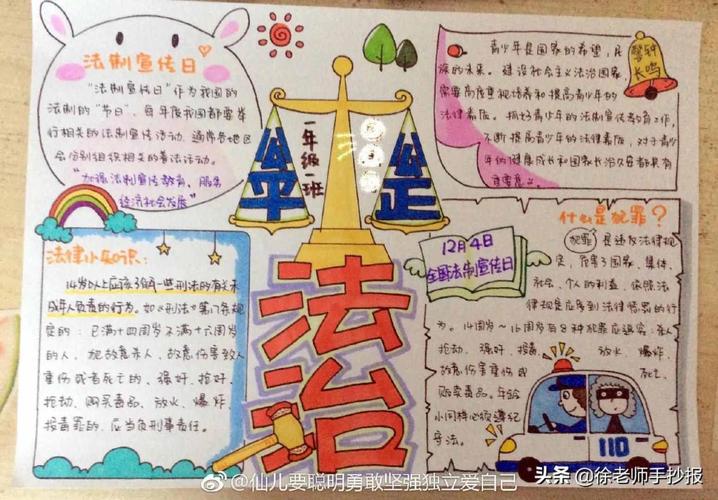 法制宣传日
"法制宣传日"作为我国的
法制的"节日",每年度我国都要举
行相关的法制宣传活动,通常各地区
会分别组织相关的普法活动。
"加强法制宣传教育、服务
经济社会发展"
公平
公正
一年级一班
青少年是国家的希望,民
族的未来。建设社会主义法治国家,
需要高度重视培养和提高青少年的
法律素质。抓好青少年的法制宣传教育工作,
不断提高青少年的法律素质,对于青少
年的健康成长和国家长治久安都具有
重要意义。
警钟
长鸣
法律小知识:
14岁以上应该了解一些刑法的有关未
成年人负责的行为。如《刑法》第17条规
定的:已满十四周岁不满十六周岁
的人,犯故意杀人、故意伤害致人
重伤或者死亡的、强奸、抢劫、
贩卖毒品、放火、爆炸
投毒罪的,应当负刑事责任。
法治
12月4日
全国法制宣传日
什么是犯罪?
犯罪是违反法律规
定,危害了国家、集体、
社会、个人的利益,依照法
律规定应受到法律惩罚的行
为。14周岁~16周岁有8种犯罪应追究:杀人
抢劫、强奸、投毒、放火、爆炸、
故意伤害重伤或死亡、
贩卖毒品。年龄
小同样必须遵纪
守法。
110
@仙儿要聪明勇敢坚强独立爱自己
头条 @徐老师手抄报